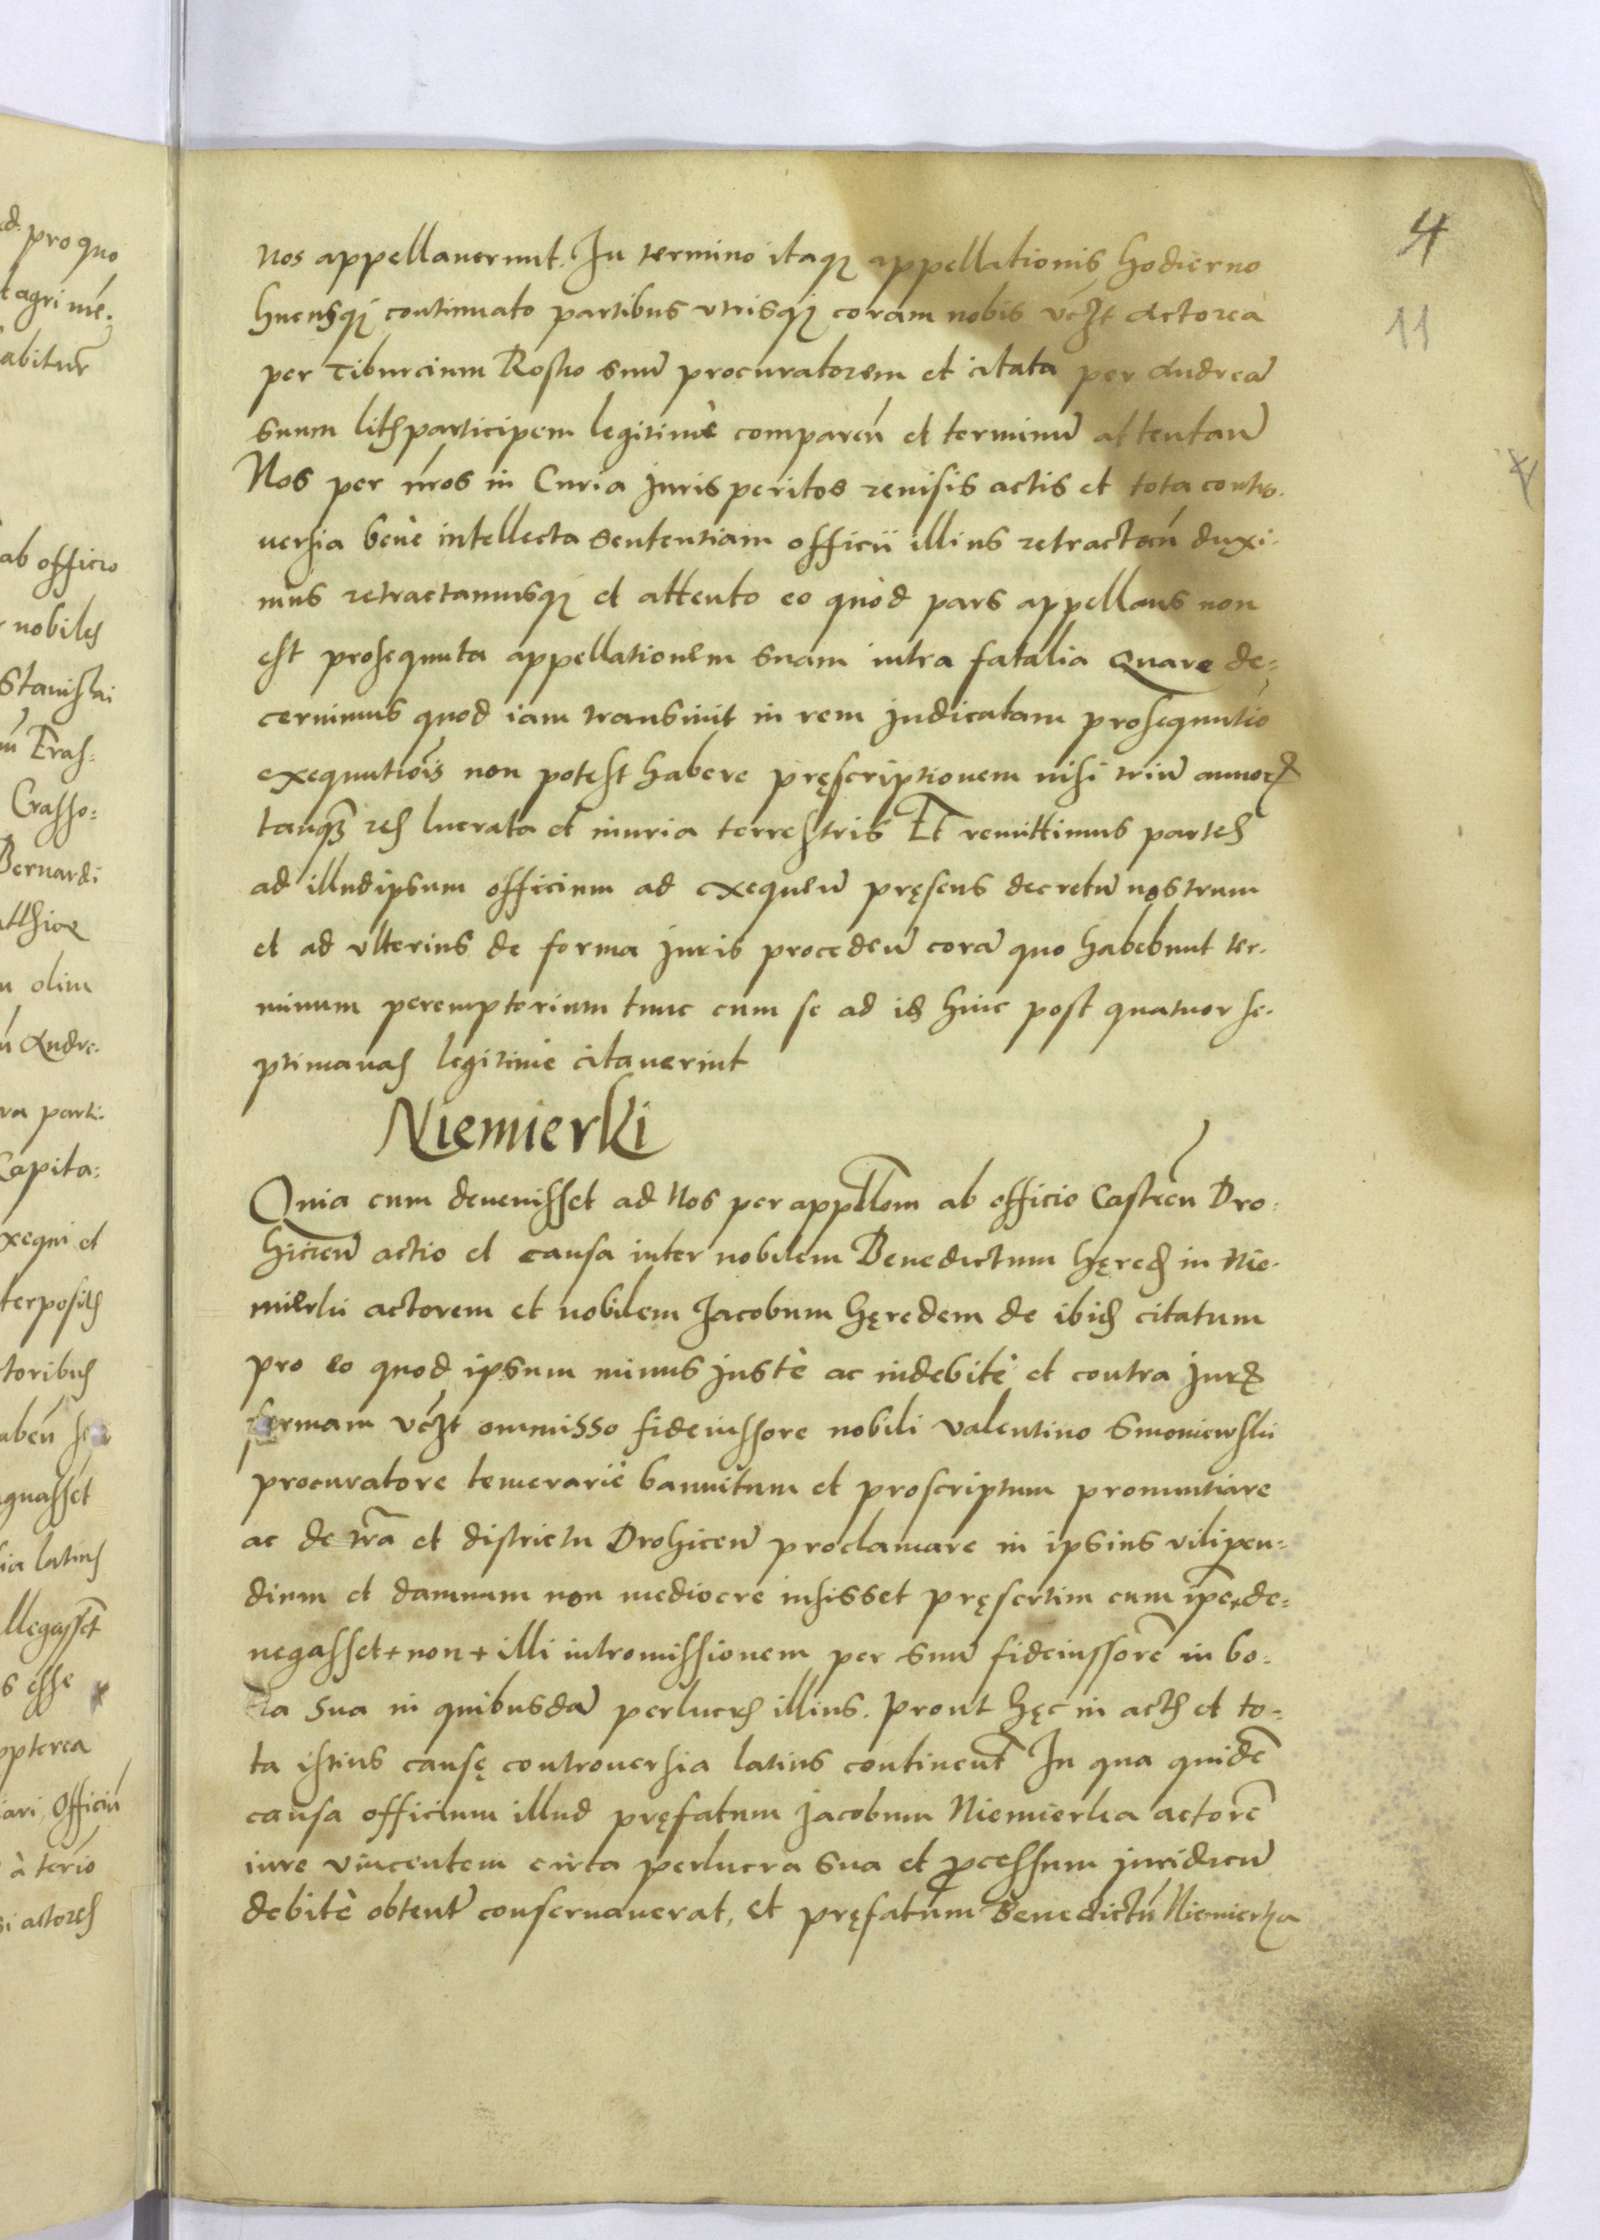 4
11
nos appellaverunt. In termino itaq; appellationis hodierno
hucusq; continuato partibus utrisq; coram nobis vczt actorea
per Tiburcium Rosko suũ procuratorem et citata per Andreã
suum litisparticipem legitimè compareñ et terminũ attentañ
Nos per nr̃os in Curia Juris peritos revisis actis et tota contro-
versia benè intellecta sententiam officii illius retractañ duxi-
mus retractamusq; et attento eo quòd pars appellans non
est prosequuta appellationem suam intra fatalia Quare de-
cernimus quod iam transivit in rem Judicatam prosequutio
exequutiois non potest habere pręscriptionem nisi triũ annorꝝ
tanqꝫ res lucrata et iniuria terrestris Et remittimus partes
ad illud ipsum officium ad exequeñ pręsens decretũ nostrum
et ad ulterius de forma Juris procedeñ corã quo habebunt ter-
minum peremptorium tunc cum se ad id hinc post quatuor se-
ptimanas legitimè citaverint
Niemierki
Quia cum devenisset ad Nos per appllom ab officio Castreñ Dro-
hicieñ actio et causa inter nobilem Benedictum hęred in Nie-
mierki actorem et nobilem Jacobum hęredem de ibid citatum
pro eo quod ipsum minus Justè ac indebitè et contra Juris
formam vczt ommisso fideiussore nobili Valentino Smoniewski
procuratore temerariè bannitum et proscriptum pronuntiare
ac de tr̃a et districtu Drohiceñ proclamare in ipsius vilipen-
dium et damnum non mediocre iussisset pręsertim cum ip̃e de-
negasset + non + illi intromissionem per suũ fideiussorẽ in bo-
na sua in quibusdã perlucris illius. prout hęc in actis et to-
ta istius causę controversia latius continent̃ In qua quidẽ
causa officium illud pręfatum Jacobum Niemierka actorẽ
iure vincentem circa perlucra sua et ꝓcessum juridicũ
debitè obtent̃ conservaverat, et pręfatum Benedictũ Niemierka